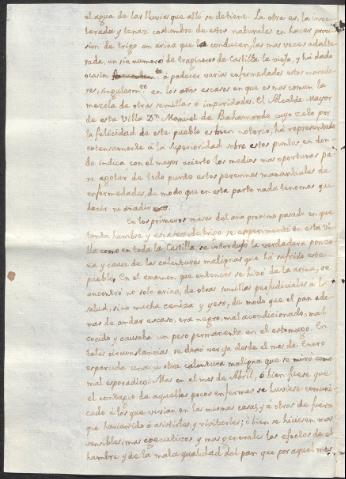 el agua de las lluvias que allí se detiene. La otra es, la inve-
terada y tenaz costumbre de estos naturales en hacer provi-
sion de trigo en arina que la conducen, las mas veces adulte-
rada, un sin numero de tragineros de Castilla la vieja, y há dado
ocasion a padecer varias enfermedades estos morado-
res, singularmte. en los años escasos en que es mas comun la
mezcla de otras semillas é impuridades. El Alcalde Mayor
de esta Villa Dn. Manuel de Bahamonde cuyo zelo por
la felicidad de este pueblo es bien notorio, há representado
extensamente á la Superioridad sobre estos puntos, en don-
de indica con el mayor acierto los medios mas oportunos pa-
ra agotar de todo punto estos perennes manantiales de
enfermedades, de modo que en esta parte nada tenemos que
hacer ni añadir
En los primeros meses del año proximo pasado en que
tanta hambre y escasez de trigo se experimentó en esta Vi-
lla como en toda la Castilla, se introdujo la verdadera ponzo-
ña y causa de las calenturas malignas que há sufrido este
pueblo. En el examen que entonces se hizo de la arina, se
encontró no solo arina, de otras semillas perjudiciales á la
salud, sino mucha ceniza y yeso, de modo que el pan ade-
mas de andar escaso, era negro, mal acondicionado, mal
cocido y causaba un peso permanente en el estomago. En
tales circunstancias se dexó ver ya desde el mes de Enero
esparcida una ú otra calentura maligna que se miró como
mal esporadico: Mas en el mes de Abril, ó bien fuese que
el contagio de aquellos pocos enfermos se huviese comuni-
cado á los que vivian en las mismas casas, y á otros de fuera
que havian ido á asistirles y visitarles; ó bien se hiciesen mas
sensibles, mas executivos y mas generales los efectos de el
hambre y de la mala qualidad del pan que por aquel mes